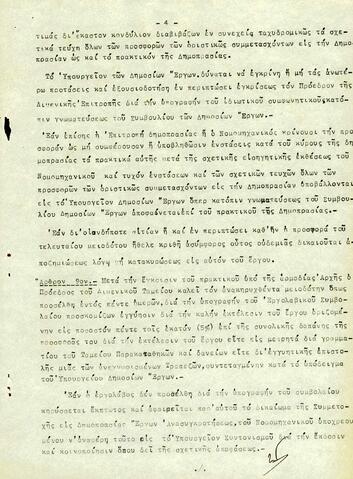 - 4 -
τιμάς δι'ἕκαστον κονδύλιον διαβιβάζων ἐν συνεχείᾳ ταχυδρομικῶς τά σχε
τικά τεύχη ὅλων τῶν προσφορῶν τῶν ὁριστικῶς συμμετασχόντων εἰς τήν Δημο
πρασίαν ὡς καί τό πρακτικόν τῆς Δημοπρασίας.
Τό Ὑπουργεῖον τῶν Δημοσίων Ἔργων,δύναται νά ἐγκρίνῃ ἤ μή τάς ἀνωτέ
ρω προτάσεις καί ἐξουσιοδοτήσῃ ἐν περιπτώσει ἐγκρίσεως τόν Πρόεδρον τῆς
Λιμενικῆς Ἐπιτροπῆς διά τήν ὑπογραφήν τοῦ ἰδιωτικοῦ συμφωνητικοῦ,κατό-
πιν γνωματεύσεως τοῦ Συμβουλίου τῶν Δημοσίων Ἔργων.
Ἐάν ἐπίσης ἡ Ἐπιτροπή δημοπρασίας ἤ ὁ Νομομηχανικός κρίνουσι τήν προ
σφοράν ὡς μή συμφέρουσαν ἤ ὑποβληθῶσιν ἐνστάσεις κατά τοῦ κύρους τῆς δη
μοπρασίας τά πρακτικά αὐτῆς μετά τῆς σχετικῆς εἰσηγητικῆς ἐκθέσεως τοῦ
Νομομηχανικοῦ καί τυχόν ἐνστάσεων καί τῶν σχετικῶν τευχῶν ὅλων τῶν
προσφορῶν τῶν ὁριστικῶς συμμετασχόντων εἰς τήν Δημοπρασίαν ὑποβάλλονται
εἰς τό Ὑπουργεῖον Δημοσίων Ἔργων ὅπερ κατόπιν γνωματεύσεως τοῦ Συμβου-
λίου Δημοσίων Ἔργων ἀποφαίνεται ἐπί τοῦ πρακτικοῦ τῆς Δημοπρασίας.-
Ἐάν δι'οἱανδήποτε αἰτίαν ἤ καί ἐν περιπτώσει καθ'ἥν ἡ προσφορά τοῦ
τελευταίου μειοδότου ἤθελε κριθῇ ἀσύμφορος οὗτος οὐδεμιᾶς δικαιοῦται ἀ-
ποζημιώσεως λόγῳ μή κατακυρώσεως εἰς αὐτόν τοῦ ἔργου.
Ἄρθρον 9ον.- Μετά τήν ἔγκρισιν τοῦ πρακτικοῦ ὑπό τῆς ἁρμοδίας Ἀρχῆς ὁ
Πρόεδρος τοῦ Λιμενικοῦ Ταμείου καλεῖ τόν ἀνακηρυχθέντα μειοδότην ὅπως
προσέλθῃ ἐντός πέντε ἡμερῶν,διά τήν ὑπογραφήν τοῦ Ἐργολαβικοῦ Συμβο-
λαίου προσκομίζων ἐγγύησιν διά τήν καλήν ἐκτέλεσιν τοῦ ἔργου ὁριζομέ-
νην εἰς ποσοστόν πέντε τοῖς ἑκατόν (5%) ἐπί τῆς συνολικῆς δαπάνης τῆς
προσφορᾶς του διά τήν ἐκτέλεσιν τοῦ ἔργου εἴτε εἰς μετρητά διά γραμμα-
τίου τοῦ Ταμείου Παρακαταθηκῶν καί δανείων εἴτε δι'ἐγγυητικῆς ἐπιστο-
λῆς μιᾶς τῶν ἀνεγνωρισμένων Τραπεζῶν,συντεταγμένην κατά τό ὑπόδειγμα
τοῦ Ὑπουργείου Δημοσίων Ἔργων.
Ἐάν ὁ ἐργολάβος δέν προσέλθῃ διά τήν ὑπογραφήν τοῦ συμβολαίου
κηρύσσεται ἔκπτωτος καί ἀφαιρεῖται παρ'αὐτοῦ τό δικαίωμα τῆς Συμμετο-
χῆς εἰς Δημοπρασίας Ἔργων Ἀνασυγκροτήσεως,τοῦ Νομομηχανικοῦ ὑποχρεου
μένου ν'ἀναφέρῃ τοῦτο εἰς τό Ὑπουργεῖον Συντονισμοῦ διά τήν ἔκδοσιν
καί κοινοποίησιν ὅπου δεῖ τῆς σχετικῆς ἀποφάσεως.-
./.